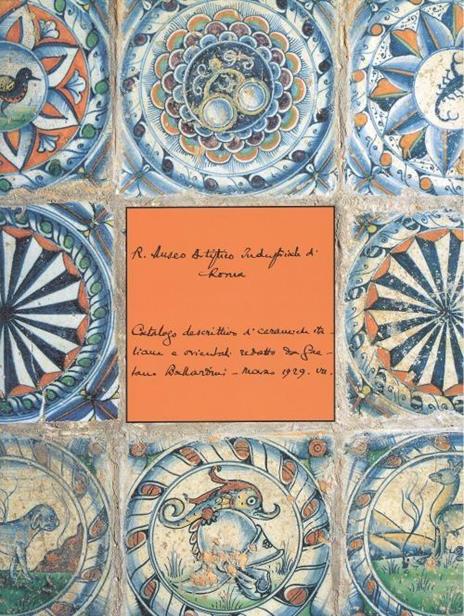 R. Museo Artistico Industriale d'
Roma
Catalogo descrittivo d' ceramiche ita-
liane e orientali redatto da Gae-
tano Ballardini - Marzo 1929. VII.